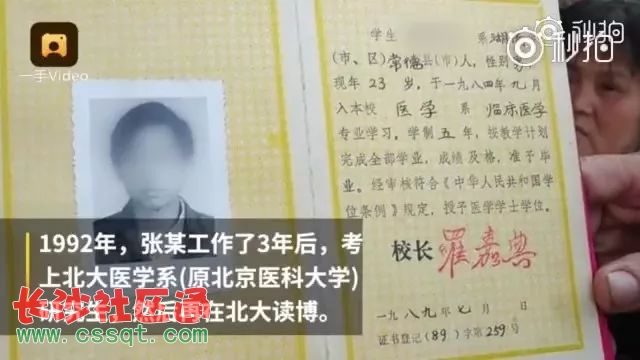 一手Video
秒拍
秒拍
学生 系湖南
(市、区)常德县(市)人，性别男
现年23岁，于一九八四年九月
入本校 医学 系 临床医学
专业学习。学制五年，按教学计划
完成全部学业，成绩及格，准予毕
业。经审核符合《中华人民共和国学
位条例》规定，授予医学学士学位。
校长 罗嘉典
一九八九年七月 日
证书登记(89)字第259号
1992年，张某工作了3年后，考
上北大医学系(原北京医科大学)
研究生，然后再在北大读博。
长沙社区通
www.cssqt.com